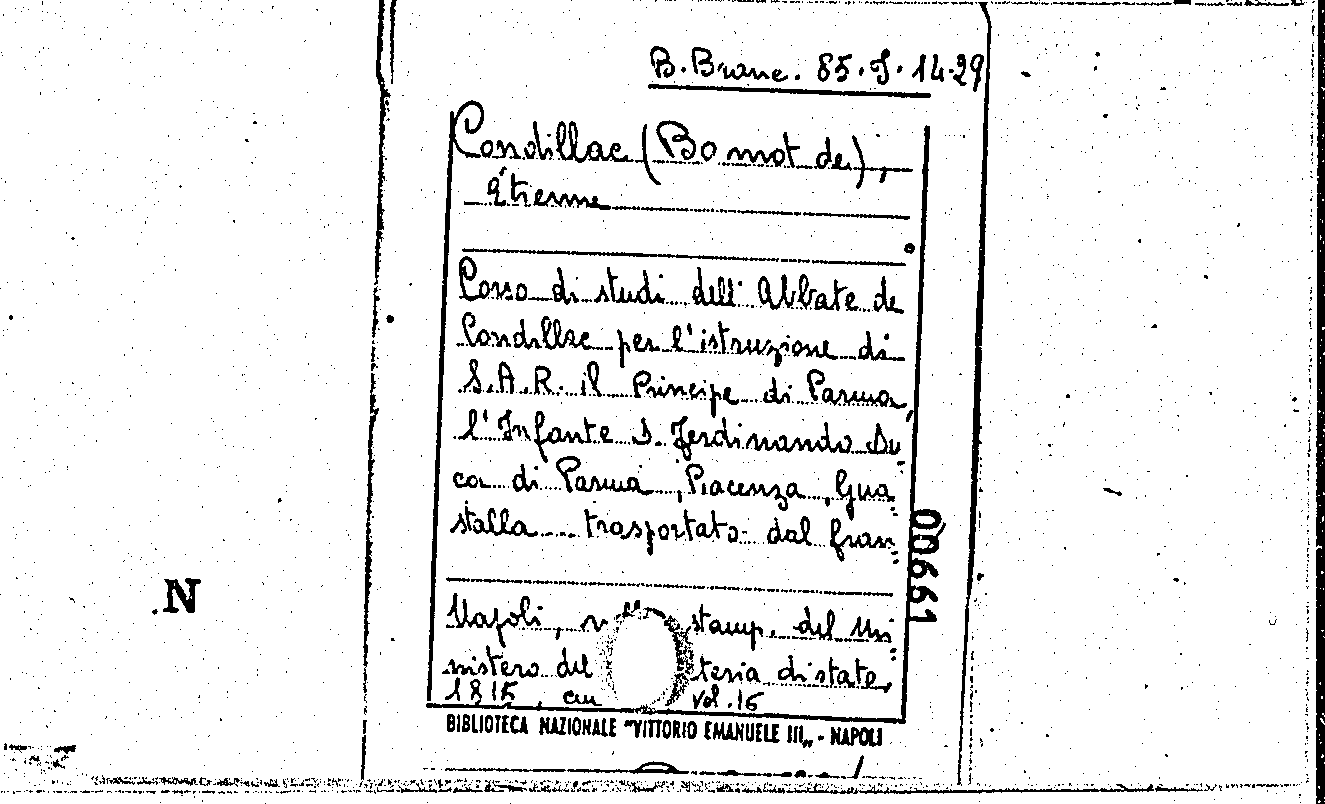 B. Branc. 85. J. 14-29
Condillac (Bo nnot de),
Étienne
Corso di studi dell' Abbate de
Condillac per l'istruzione di
S.A.R. il Principe di Parma,
l'Infante D. Ferdinando Du-
ca di Parma, Piacenza, Gua-
stalla ... trasportato dal fran-
00661
N
Napoli, stamp. del Mi-
nistero del teria di stato,
1815, vol. 16
BIBLIOTECA NAZIONALE "VITTORIO EMANUELE III„ - NAPOLI